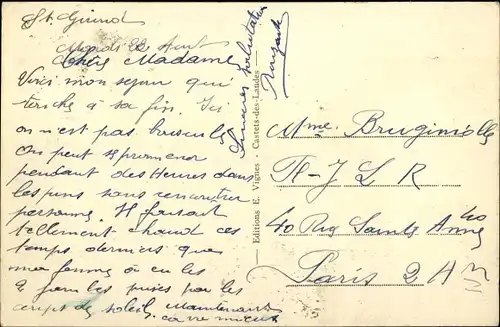 St. Girons
Mardi 22 Aout
Chère Madame
Voici mon sejour qui
touche à sa fin. Ici
on n'est pas bousculé
On peut se promener
pendant des Heures dans
les pins sans rencontrer
personne. Il faisait
tellement chaud ces
temps derniers que
ma femme a eu les
par les
coups de soleil. Maintenant
ça va mieux
Sincères Salutations
Editions E. Vignes - Castets-des-Landes
Mme Bruginiolle
40 Rue Sainte Anne
Paris 2